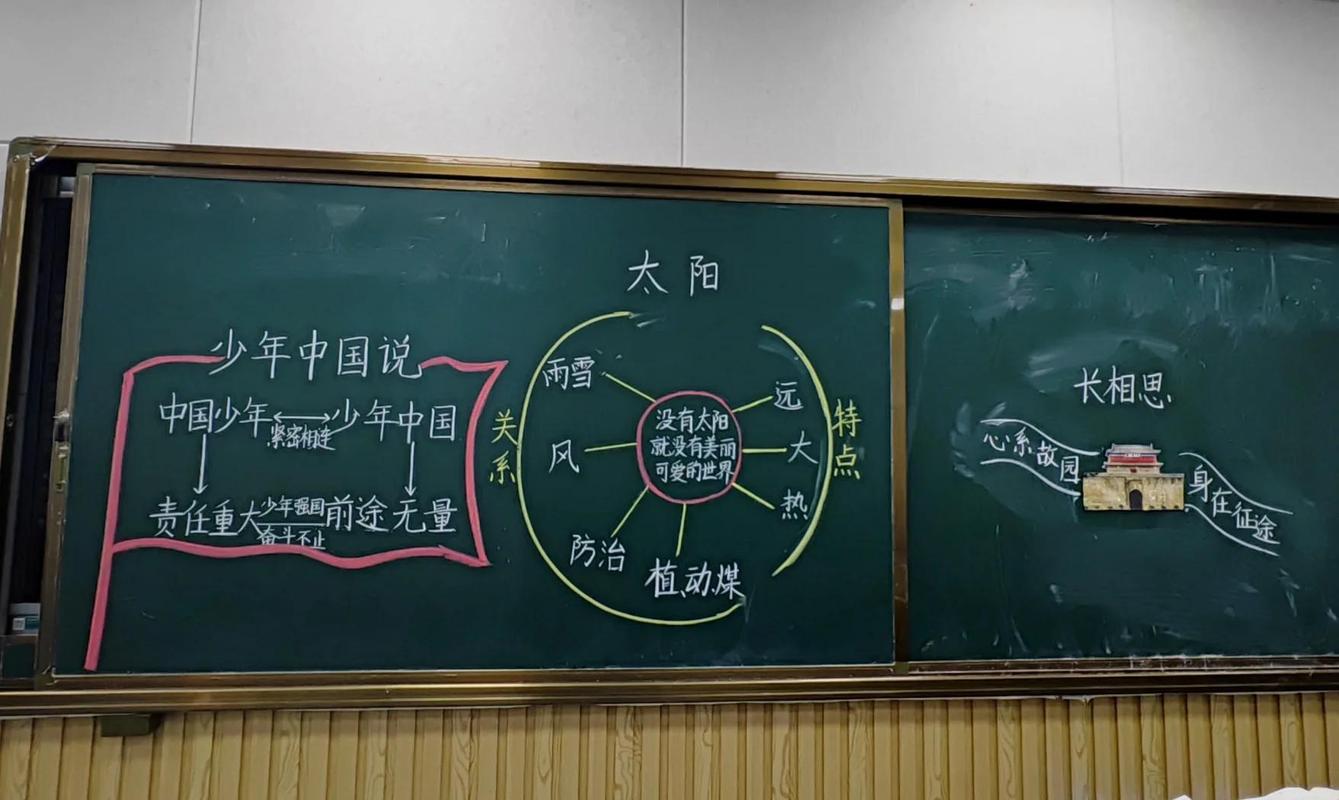 少年中国说
中国少年 紧密相连 少年中国
责任重大 少年强国 前途无量
奋斗不止
太阳
关系
雨雪
风
防治
植、动、煤
没有太阳
就没有美丽
可爱的世界
远
大
热
特点
长相思
心系故园
身在征途